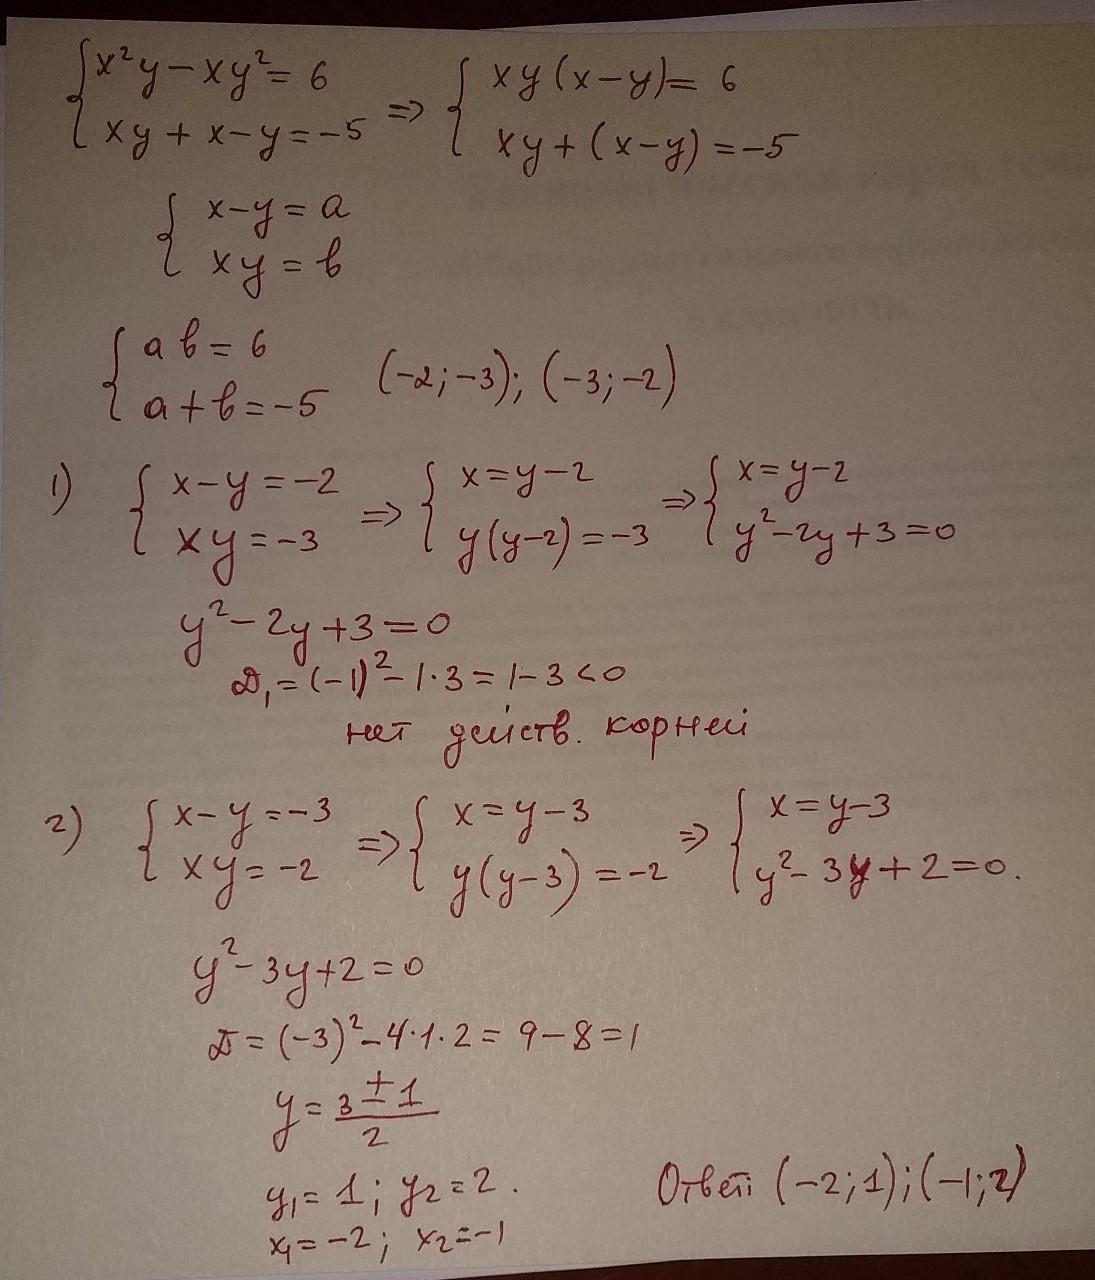 { x²y − xy² = 6 ⇒ { xy(x−y) = 6
{ xy + x − y = −5 { xy + (x−y) = −5
{ x−y = a
{ xy = b
{ ab = 6
{ a+b = −5 (−2;−3); (−3;−2)
1) { x−y = −2 ⇒ { x = y−2 ⇒ { x = y−2
{ xy = −3 { y(y−2) = −3 { y²−2y+3=0
y²−2y+3=0
D₁ = (−1)²−1·3 = 1−3 < 0
нет действ. корней
2) { x−y = −3 ⇒ { x = y−3 ⇒ { x = y−3
{ xy = −2 { y(y−3) = −2 { y²−3y+2=0.
y²−3y+2=0
D = (−3)²−4·1·2 = 9−8 = 1
y = (3±1)/2
y₁ = 1; y₂ = 2.
x₁ = −2; x₂ = −1
Ответ: (−2;1); (−1;2)